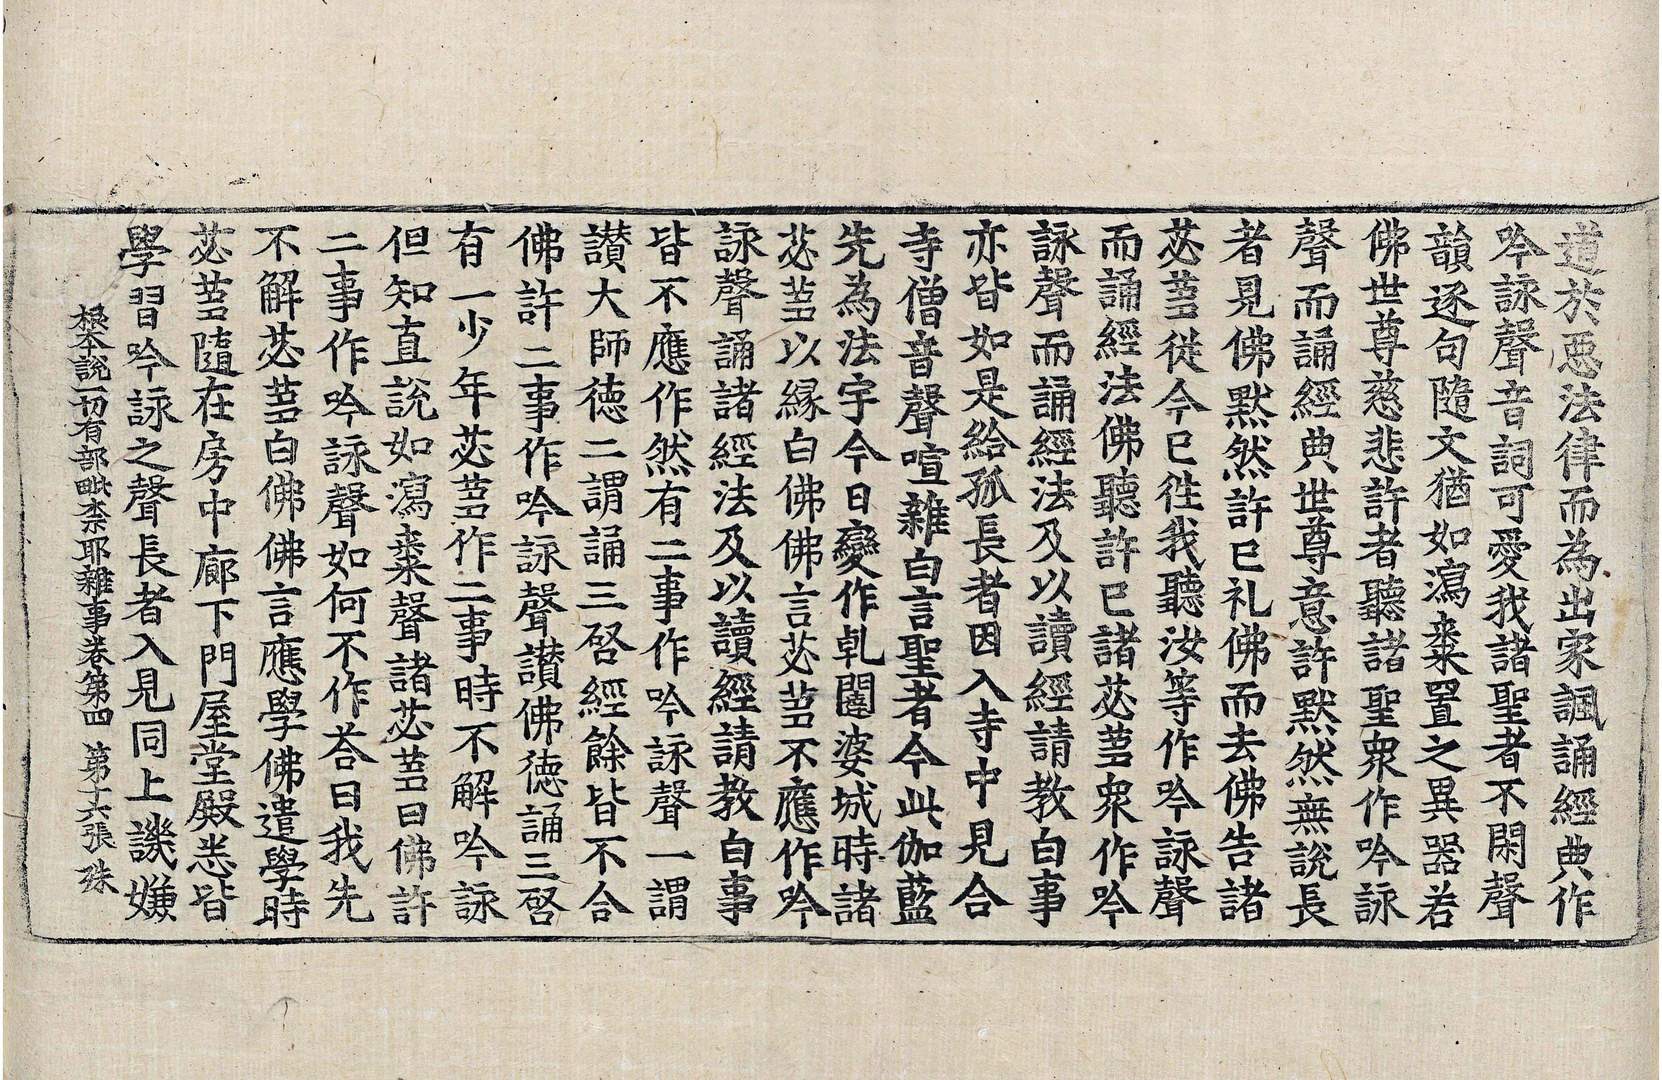 道於惡法律而為出家諷誦經典作
吟詠聲音詞可愛我諸聖者不閑聲
韻逐句隨文猶如瀉棗置之異器若
佛世尊慈悲許者聽諸聖衆作吟詠
聲而誦經典世尊意許默然無說長
者見佛默然許已礼佛而去佛告諸
苾芻從今已徃我聽汝等作吟詠聲
而誦經法佛聽許已諸苾芻衆作吟
詠聲而誦經法及以讀經請教白事
亦皆如是給孤長者因入寺中見合
寺僧音聲喧雜白言聖者今此伽藍
先為法宇今日變作乹闥婆城時諸
苾芻以緣白佛佛言苾芻不應作吟
詠聲誦諸經法及以讀經請教白事
皆不應作然有二事作吟詠聲一謂
讚大師德二謂誦三啓經餘皆不合
佛許二事作吟詠聲讚佛德誦三啓
有一少年苾芻作二事時不解吟詠
但知直說如瀉棗聲諸苾芻曰佛許
二事作吟詠聲如何不作荅曰我先
不解苾芻白佛佛言應學佛遣學時
苾芻隨在房中廊下門屋堂殿悉皆
學習吟詠之聲長者入見同上譏嫌
根本說一切有部毗柰耶雜事卷第四 第十六張 殊